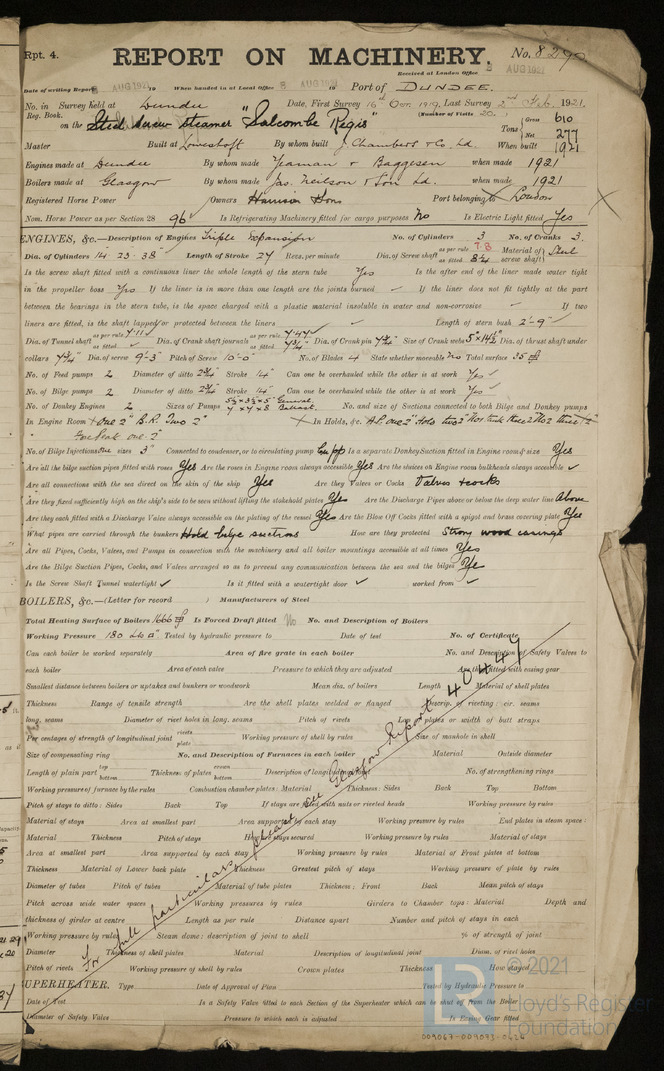 Rpt. 4.
REPORT ON MACHINERY.
No. 8290
Received at London Office
AUG 1921
Date of writing Report AUG 1921 19 When handed in at Local Office 8 AUG 1921 19 Port of DUNDEE.
No. in Survey held at Dundee Date, First Survey 16th Oct. 1919, Last Survey 2nd Feb. 1921.
Reg. Book. (Number of Visits 20.)
on the Steel screw steamer "Salcombe Regis" Tons Gross 610 Net 277
Master Built at Lowestoft By whom built J. Chambers & Co. Ld. When built 1921
Engines made at Dundee By whom made Yeaman & Baggesen when made 1921
Boilers made at Glasgow By whom made Jas. Neilson & Son Ld. when made 1921
Registered Horse Power Owners Harrison Sons Port belonging to London
Nom. Horse Power as per Section 28 96 Is Refrigerating Machinery fitted for cargo purposes No Is Electric Light fitted Yes
ENGINES, &c.—Description of Engines Triple Expansion No. of Cylinders 3 No. of Cranks 3.
Dia. of Cylinders 14. 23. 38" Length of Stroke 27 Revs. per minute Dia. of Screw shaft as per rule 7.8 as fitted 8¼ Material of screw shaft Steel
Is the screw shaft fitted with a continuous liner the whole length of the stern tube Yes Is the after end of the liner made water tight
in the propeller boss Yes If the liner is in more than one length are the joints burned If the liner does not fit tightly at the part
between the bearings in the stern tube, is the space charged with a plastic material insoluble in water and non-corrosive If two
liners are fitted, is the shaft lapped or protected between the liners Length of stern bush 2'-9"
Dia. of Tunnel shaft as per rule 7.11 as fitted Dia. of Crank shaft journals as per rule 7.47 as fitted 7¾" Dia. of Crank pin 7¾" Size of Crank webs 5"x14½" Dia. of thrust shaft under
collars 7¾" Dia. of screw 9'-3" Pitch of Screw 10'-0" No. of Blades 4 State whether moveable No Total surface 35
No. of Feed pumps 2 Diameter of ditto 2¾" Stroke 14" Can one be overhauled while the other is at work Yes
No. of Bilge pumps 2 Diameter of ditto 2¾" Stroke 14" Can one be overhauled while the other is at work Yes
No. of Donkey Engines 2 Sizes of Pumps 5½ x 3½ x 5 General. 7 x 7 x 8 Ballast. No. and size of Suctions connected to both Bilge and Donkey pumps
In Engine Room one 2" B.R. Two 2" In Holds, &c.
Forepeak one 2"
No. of Bilge Injections One sizes 3" Connected to condenser, or to circulating pump Is a separate Donkey Suction fitted in Engine room & size Yes
Are all the bilge suction pipes fitted with roses Yes Are the roses in Engine room always accessible Yes Are the sluices on Engine room bulkheads always accessible
Are all connections with the sea direct on the skin of the ship Yes Are they Valves or Cocks Valves & cocks
Are they fixed sufficiently high on the ship's side to be seen without lifting the stokehold plates Yes Are the Discharge Pipes above or below the deep water line Above
Are they each fitted with a Discharge Valve always accessible on the plating of the vessel Yes Are the Blow Off Cocks fitted with a spigot and brass covering plate Yes
What pipes are carried through the bunkers Hold bilge suctions How are they protected Strong wood casings
Are all Pipes, Cocks, Valves, and Pumps in connection with the machinery and all boiler mountings accessible at all times Yes
Are the Bilge Suction Pipes, Cocks, and Valves arranged so as to prevent any communication between the sea and the bilges Yes
Is the Screw Shaft Tunnel watertight Is it fitted with a watertight door worked from
BOILERS, &c.—(Letter for record ) Manufacturers of Steel
Total Heating Surface of Boilers 1666 Is Forced Draft fitted No No. and Description of Boilers
Working Pressure 180 Lbs Tested by hydraulic pressure to Date of test No. of Certificate
Can each boiler be worked separately Area of fire grate in each boiler No. and Description of Safety Valves to
each boiler Area of each valve Pressure to which they are adjusted Are they fitted with easing gear
Smallest distance between boilers or uptakes and bunkers or woodwork Mean dia. of boilers Length Material of shell plates
Thickness Range of tensile strength Are the shell plates welded or flanged Descrip. of riveting: cir. seams
long. seams Diameter of rivet holes in long. seams Pitch of rivets Lap of plates or width of butt straps
Per centages of strength of longitudinal joint rivets plate Working pressure of shell by rules Size of manhole in shell
Size of compensating ring No. and Description of Furnaces in each boiler Material Outside diameter
Length of plain part top bottom Thickness of plates crown bottom Description of longitudinal joint No. of strengthening rings
Working pressure of furnace by the rules Combustion chamber plates: Material Thickness: Sides Back Top Bottom
Pitch of stays to ditto: Sides Back Top If stays are fitted with nuts or riveted heads Working pressure by rules
Material of stays Area at smallest part Area supported by each stay Working pressure by rules End plates in steam space:
Material Thickness Pitch of stays How are stays secured Working pressure by rules Material of stays
Area at smallest part Area supported by each stay Working pressure by rules Material of Front plates at bottom
Thickness Material of Lower back plate Thickness Greatest pitch of stays Working pressure of plate by rules
Diameter of tubes Pitch of tubes Material of tube plates Thickness: Front Back Mean pitch of stays
Pitch across wide water spaces Working pressures by rules Girders to Chamber tops: Material Depth and
thickness of girder at centre Length as per rule Distance apart Number and pitch of stays in each
Working pressure by rules Steam dome: description of joint to shell % of strength of joint
Diameter Thickness of shell plates Material Description of longitudinal joint Diam. of rivet holes
Pitch of rivets Working pressure of shell by rules Crown plates Thickness How stayed
For full particulars, please see Glasgow Report 40447
SUPERHEATER. Type Date of Approval of Plan Tested by Hydraulic Pressure to
Date of Test Is a Safety Valve fitted to each Section of the Superheater which can be shut off from the Boiler
Diameter of Safety Valve Pressure to which each is adjusted Is Easing Gear fitted
© 2021
Lloyd's Register
Foundation